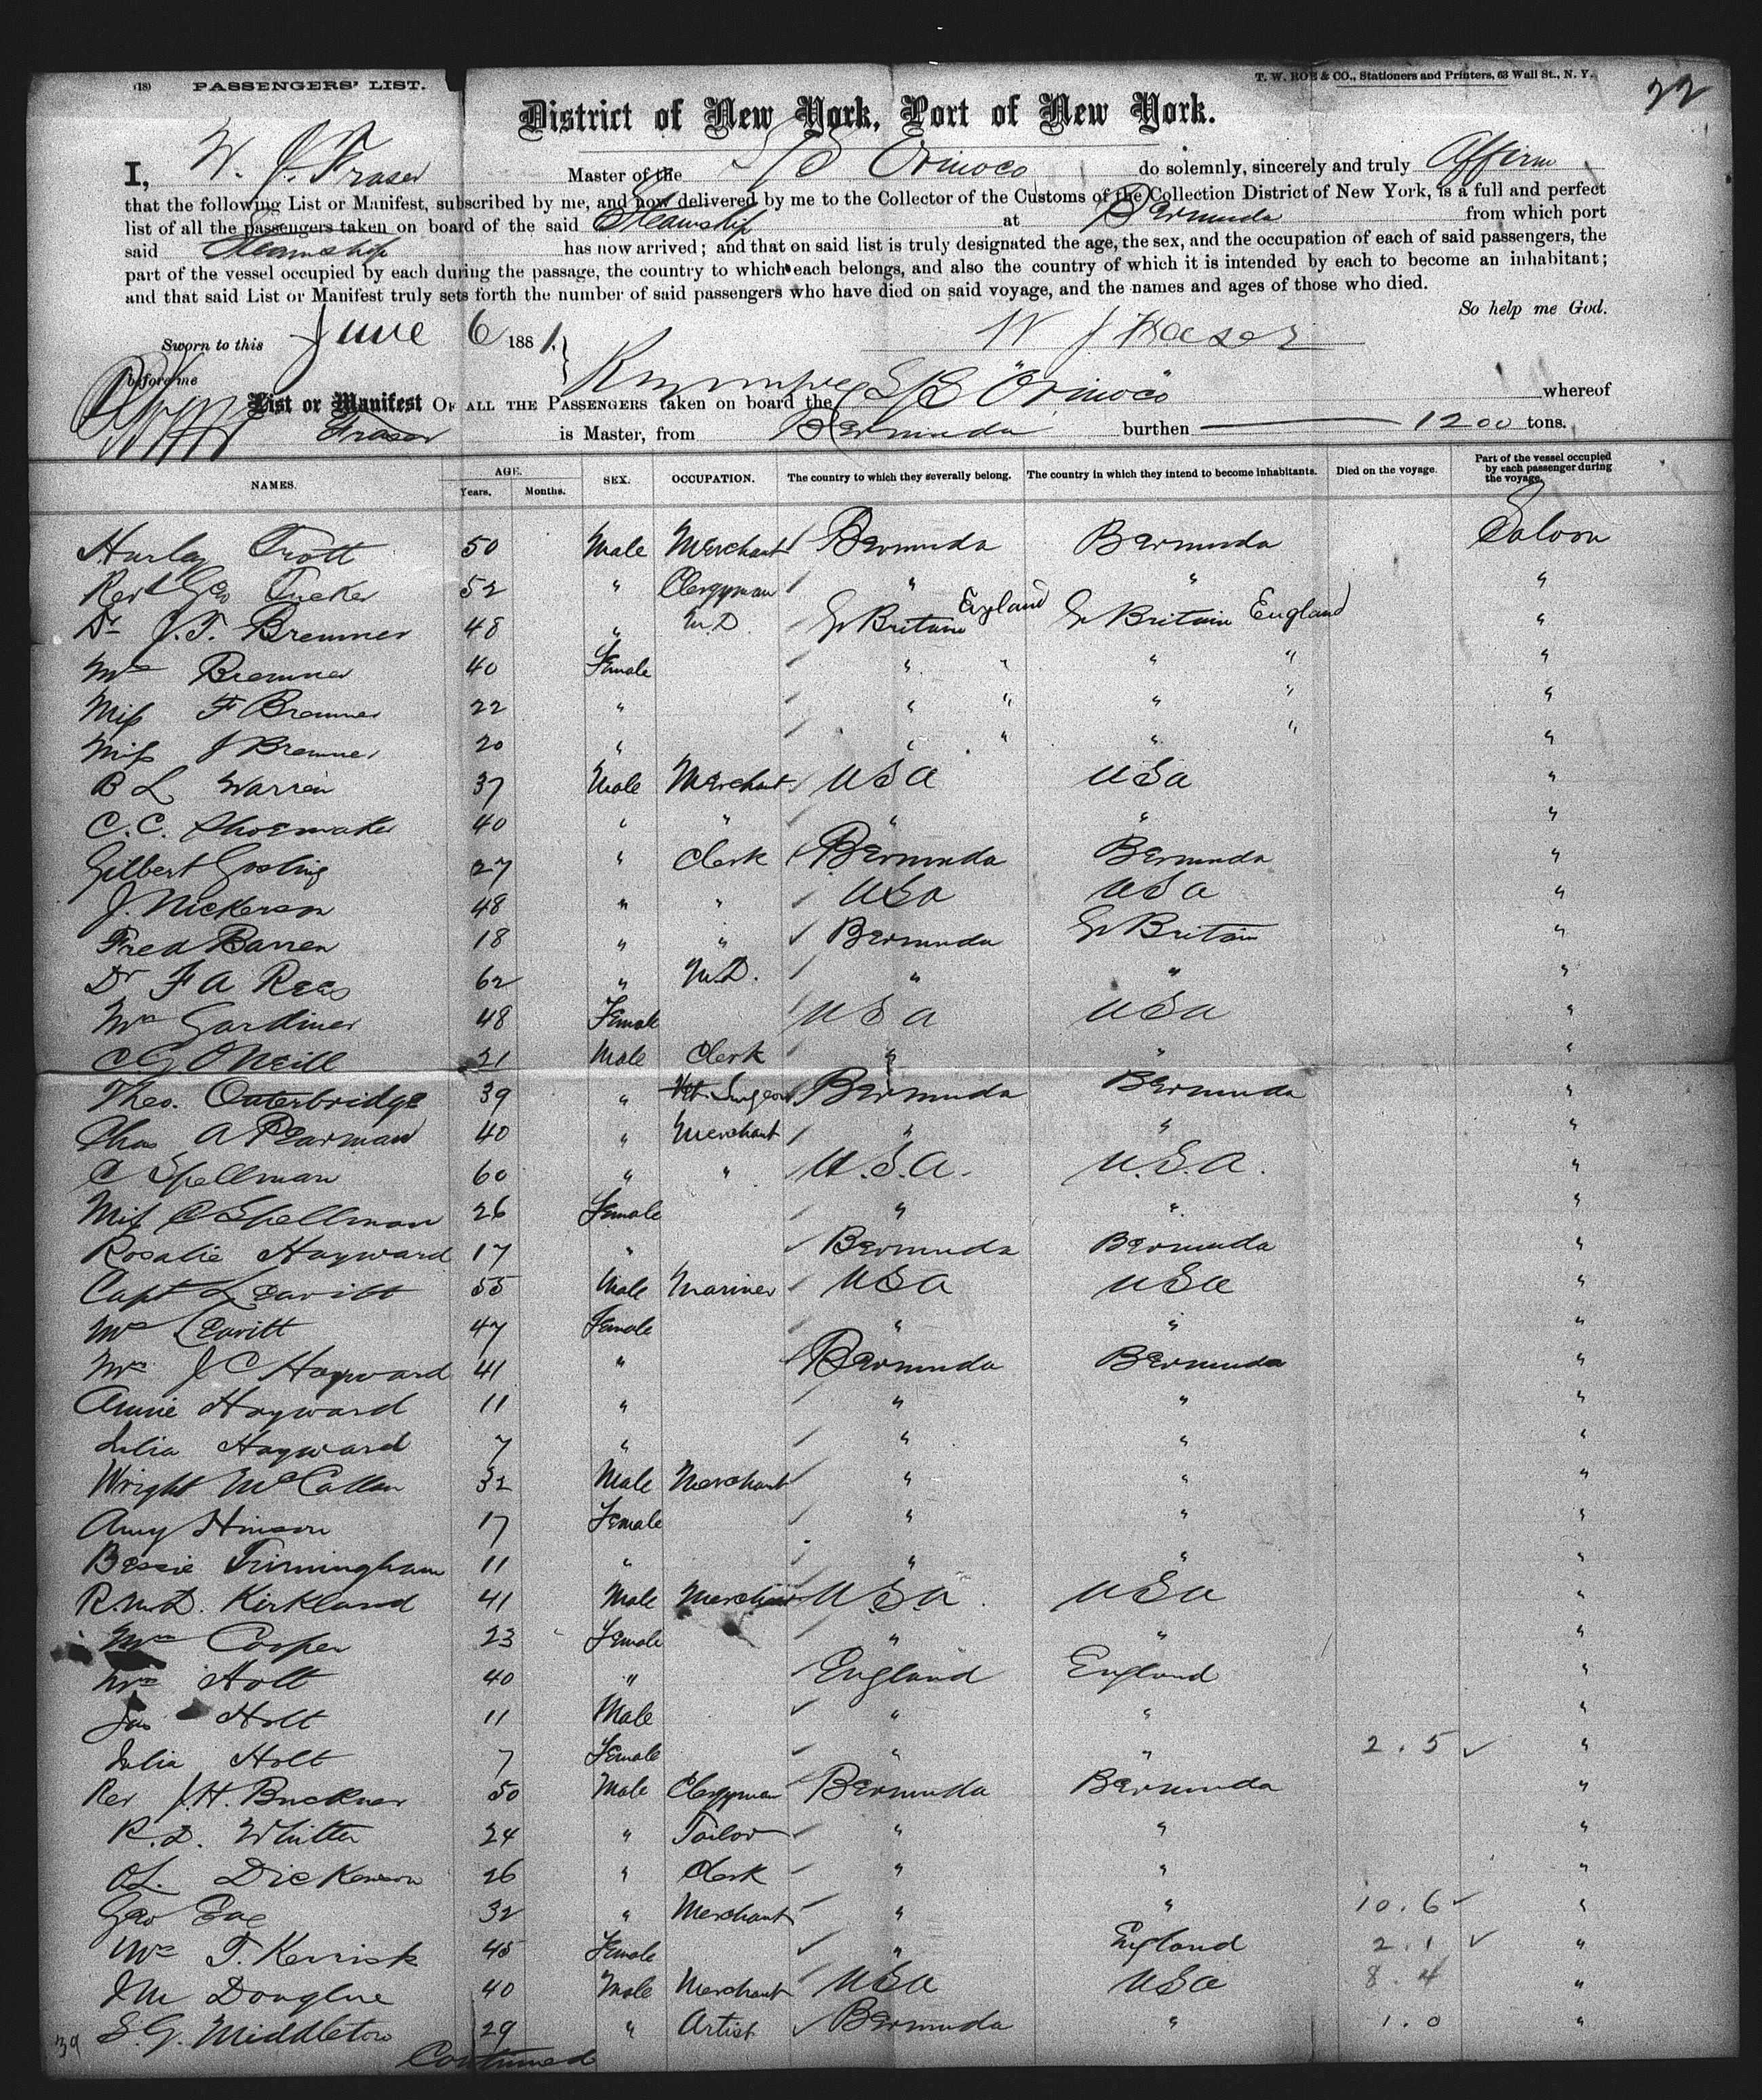 (18) PASSENGERS' LIST.
T. W. ROE & CO., Stationers and Printers, 63 Wall St., N. Y.
22
District of New York, Port of New York.
I, W. J. Fraser Master of the S/S Orinoco do solemnly, sincerely and truly Affirm
that the following List or Manifest, subscribed by me, and now delivered by me to the Collector of the Customs of the Collection District of New York, is a full and perfect
list of all the passengers taken on board of the said Steamship at Bermuda from which port
said Steamship has now arrived; and that on said list is truly designated the age, the sex, and the occupation of each of said passengers, the
part of the vessel occupied by each during the passage, the country to which each belongs, and also the country of which it is intended by each to become an inhabitant;
and that said List or Manifest truly sets forth the number of said passengers who have died on said voyage, and the names and ages of those who died.
So help me God.
Sworn to this June 6 1881. W J Fraser
before me
List or Manifest OF ALL THE PASSENGERS taken on board the S/S "Orinoco" whereof
Fraser is Master, from Bermuda burthen 1200 tons.
NAMES. AGE. Years. Months. SEX. OCCUPATION. The country to which they severally belong. The country in which they intend to become inhabitants. Died on the voyage. Part of the vessel occupied by each passenger during the voyage.
Harley Trott 50 Male Merchant Bermuda Bermuda Saloon
Revd Geo Tucker 52 " Clergyman " " "
Dr J. T. Bremner 48 " M.D. Gr Britain England Gr Britain England "
Mrs Bremner 40 Female " " " " "
Miss F Bremner 22 " " " " " "
Miss J Bremner 20 " " " " " "
B L Warren 37 Male Merchant USA USA "
C. C. Shoemaker 40 " " " " "
Gilbert Gosling 27 " Clerk Bermuda Bermuda "
J. Nickerson 48 " " USA USA "
Fred Barren 18 " " Bermuda Gr Britain "
Dr F A Rees 62 " M.D. " " "
Mrs Gardiner 48 Female USA USA "
C G O'Neill 21 Male Clerk " " "
Theo. Outerbridge 39 " Vet. Surgeon Bermuda Bermuda "
Chas A Pearman 40 " Merchant " " "
C Spellman 60 " " U.S.A. U.S.A. "
Miss C Spellman 26 Female " " "
Rosalie Hayward 17 " Bermuda Bermuda "
Capt Leavitt 55 Male Mariner USA USA "
Mrs Leavitt 47 Female " " "
Mrs J C Hayward 41 " Bermuda Bermuda "
Annie Hayward 11 " " " "
Julia Hayward 7 " " " "
Wright McCallan 32 Male Merchant " " "
Amy Hinson 17 Female " " "
Bessie Trimingham 11 " " " "
R. McD. Kirkland 41 Male Merchant U.S.A. USA "
Mrs Cooper 23 Female " " "
Mrs Holt 40 " England England "
Jas Holt 11 Male " " "
Julia Holt 7 Female " " 2.5 "
Rev J. H. Buckner 50 Male Clergyman Bermuda Bermuda "
R. D. Whitter 24 " Tailor " " "
O L. Dickenson 26 " Clerk " " "
Geo Eve 32 " Merchant " " 10.6 "
Mrs T. Kerrisk 45 Female " England 2.1 "
J M Douglue 40 Male Merchant USA USA 8.4 "
S. G. Middleton 29 " Artist Bermuda " 1.0 "
39
Continued